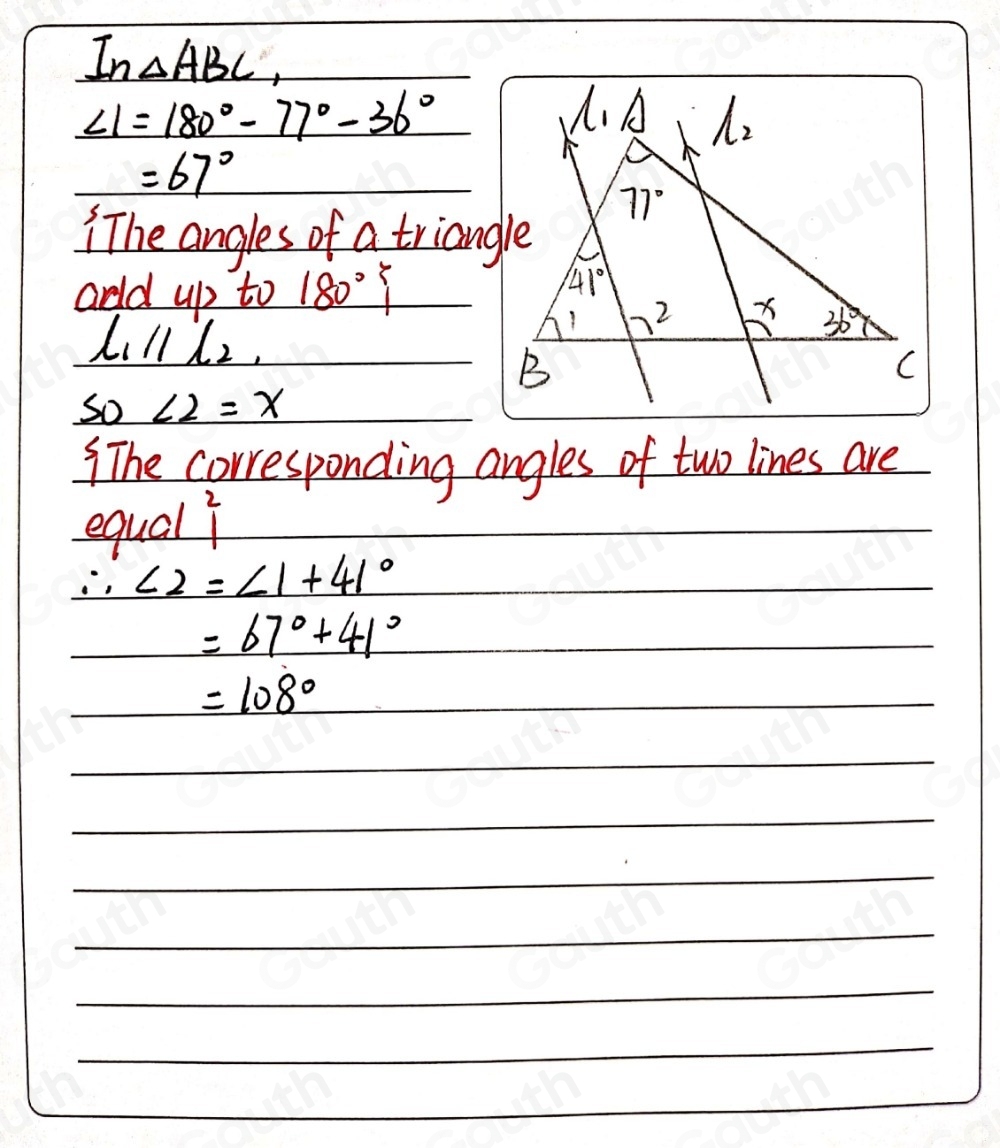 In △ABC,
∠1 = 180° - 77° - 36°
= 67°
{The angles of a triangle
add up to 180°}
l₁ // l₂.
so ∠2 = x
{The corresponding angles of two lines are
equal}
∴ ∠2 = ∠1 + 41°
= 67° + 41°
= 108°
l₁ A l₂
77°
41°
1 2 x 36°
B C